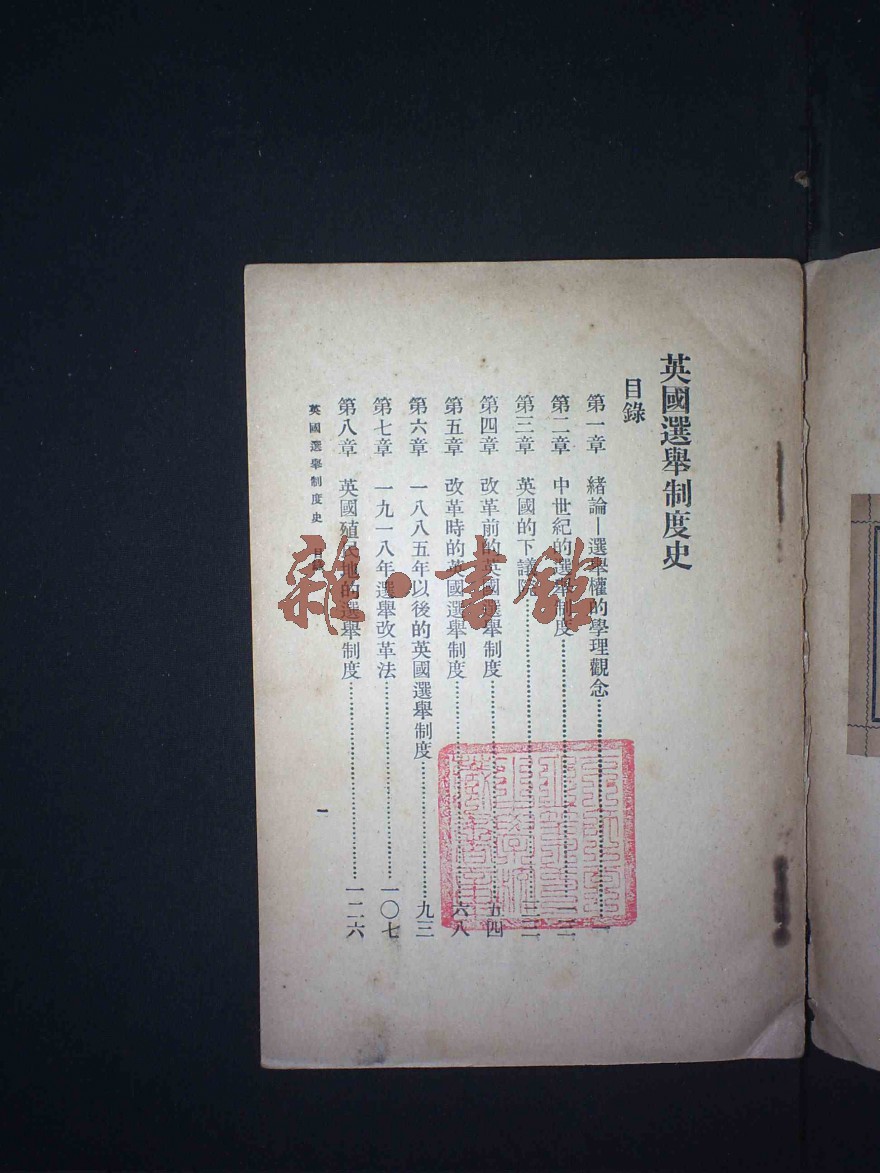 英國選舉制度史
目錄
第一章 緒論—選舉權的學理觀念……一
第二章 中世紀的選舉制度……
第三章 英國的下議院……
第四章 改革前的英國選舉制度……五四
第五章 改革時的英國選舉制度……六八
第六章 一八八五年以後的英國選舉制度……九三
第七章 一九一八年選舉改革法……一〇七
第八章 英國殖民地的選舉制度……一二六
英國選舉制度史 目錄
一
雜·書館